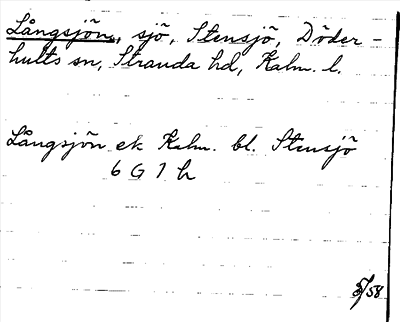 Långsjön, sjö, Stensjö, Döder-
hults sn, Stranda hd, Kalm. l.
Långsjön ek Kalm. bl. Stensjö
6 G 1 h
/58